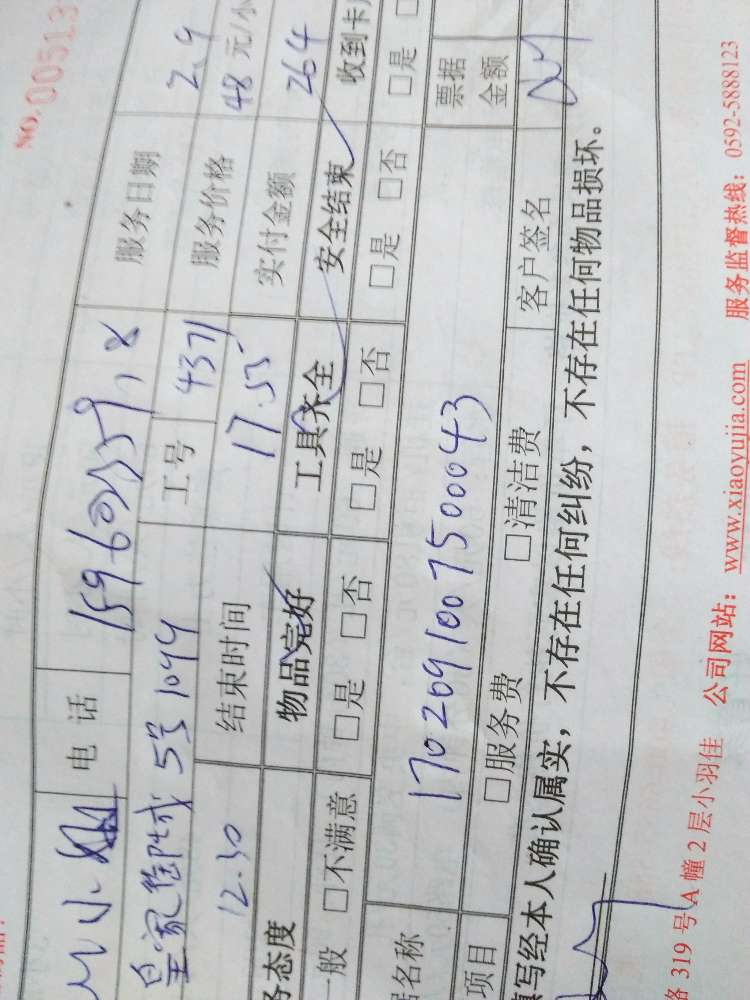 NO.00513
电话 服务日期 2.9
皇家御城 5号1044 工号 4371 服务价格 48 元/小
12.30 结束时间 17.55 实付金额 264
务态度 物品完好 工具齐全 安全结束 收到卡
一般 □不满意 □是 □否 □是 □否 □是 □否 □是
据名称 170209100750000043 票据金额
项目 □服务费 □清洁费 客户签名
填写经本人确认属实，不存在任何纠纷，不存在任何物品损坏。
路 319 号 A 幢 2 层小羽佳 公司网站：www.xiaoyujia.com 服务监督热线：0592-5888123